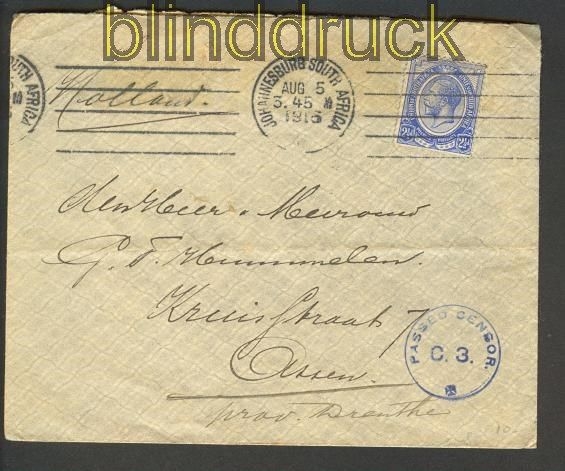 blinddruck
JOHANNESBURG SOUTH AFRICA
AUG 5
3.45
1916
UTH AFRICA
Holland.
2½ 2½
den Heer & Mevrouw
G. F. Hummelen.
Kruisstraat 7
Assen.
prov. Drenthe
PASSED CENSOR.
C. 3.
10.-